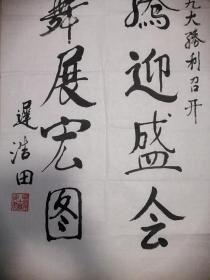 九大勝利召开
騰迎盛会
舞展宏图
遲浩田